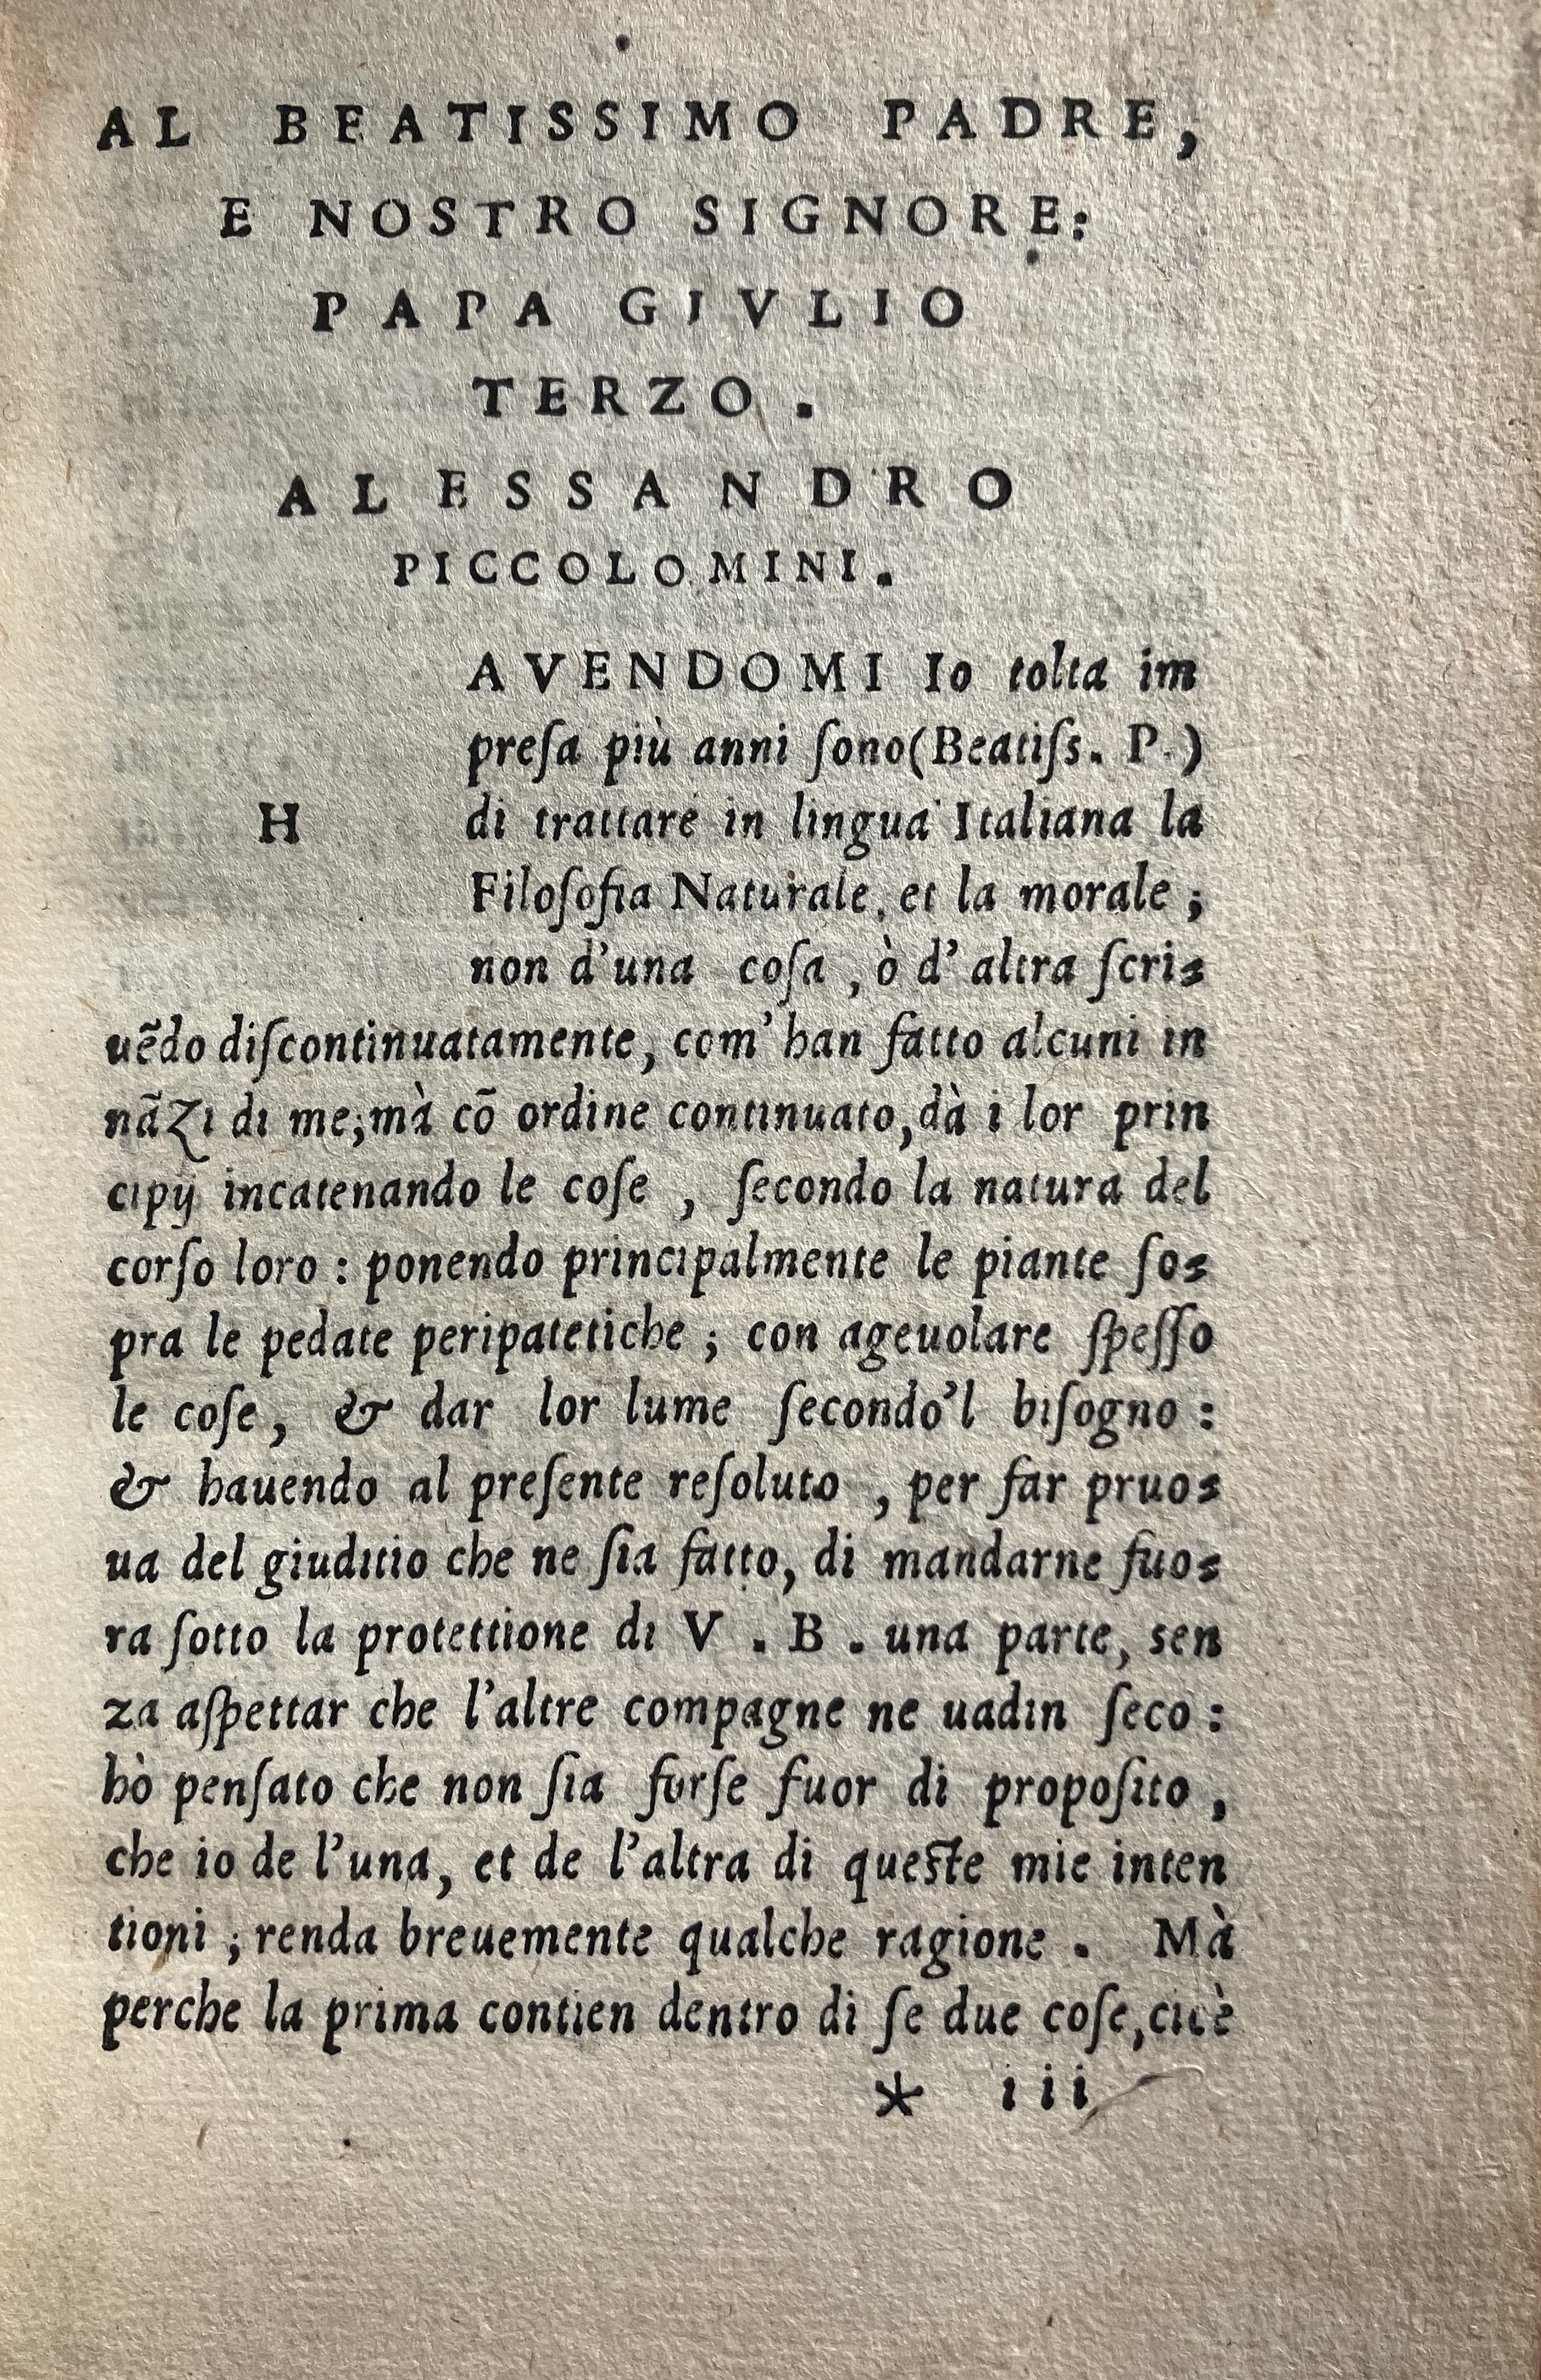 AL BEATISSIMO PADRE,
E NOSTRO SIGNORE:
PAPA GIVLIO
TERZO.
ALESSANDRO
PICCOLOMINI.
H
AVENDOMI Io tolta im
preſa più anni ſono(Beatiſs. P.)
di trattare in lingua Italiana la
Filoſofia Naturale, et la morale;
non d'una coſa, ò d'altra ſcri-
uẽdo diſcontinuatamente, com'han fatto alcuni in
nãzi di me;mà cõ ordine continuato,dà i lor prin
cipij incatenando le coſe, ſecondo la natura del
corſo loro: ponendo principalmente le piante ſo-
pra le pedate peripatetiche; con ageuolare ſpeſſo
le coſe, & dar lor lume ſecondo'l biſogno:
& hauendo al preſente reſoluto, per far pruo-
ua del giuditio che ne ſia fatto, di mandarne fuo-
ra ſotto la protettione di V. B. una parte, sen
za aſpettar che l'altre compagne ne uadin ſeco:
hò penſato che non ſia forſe fuor di propoſito,
che io de l'una, et de l'altra di queſte mie inten
tioni; renda breuemente qualche ragione. Mà
perche la prima contien dentro di ſe due coſe,cicè
* iii